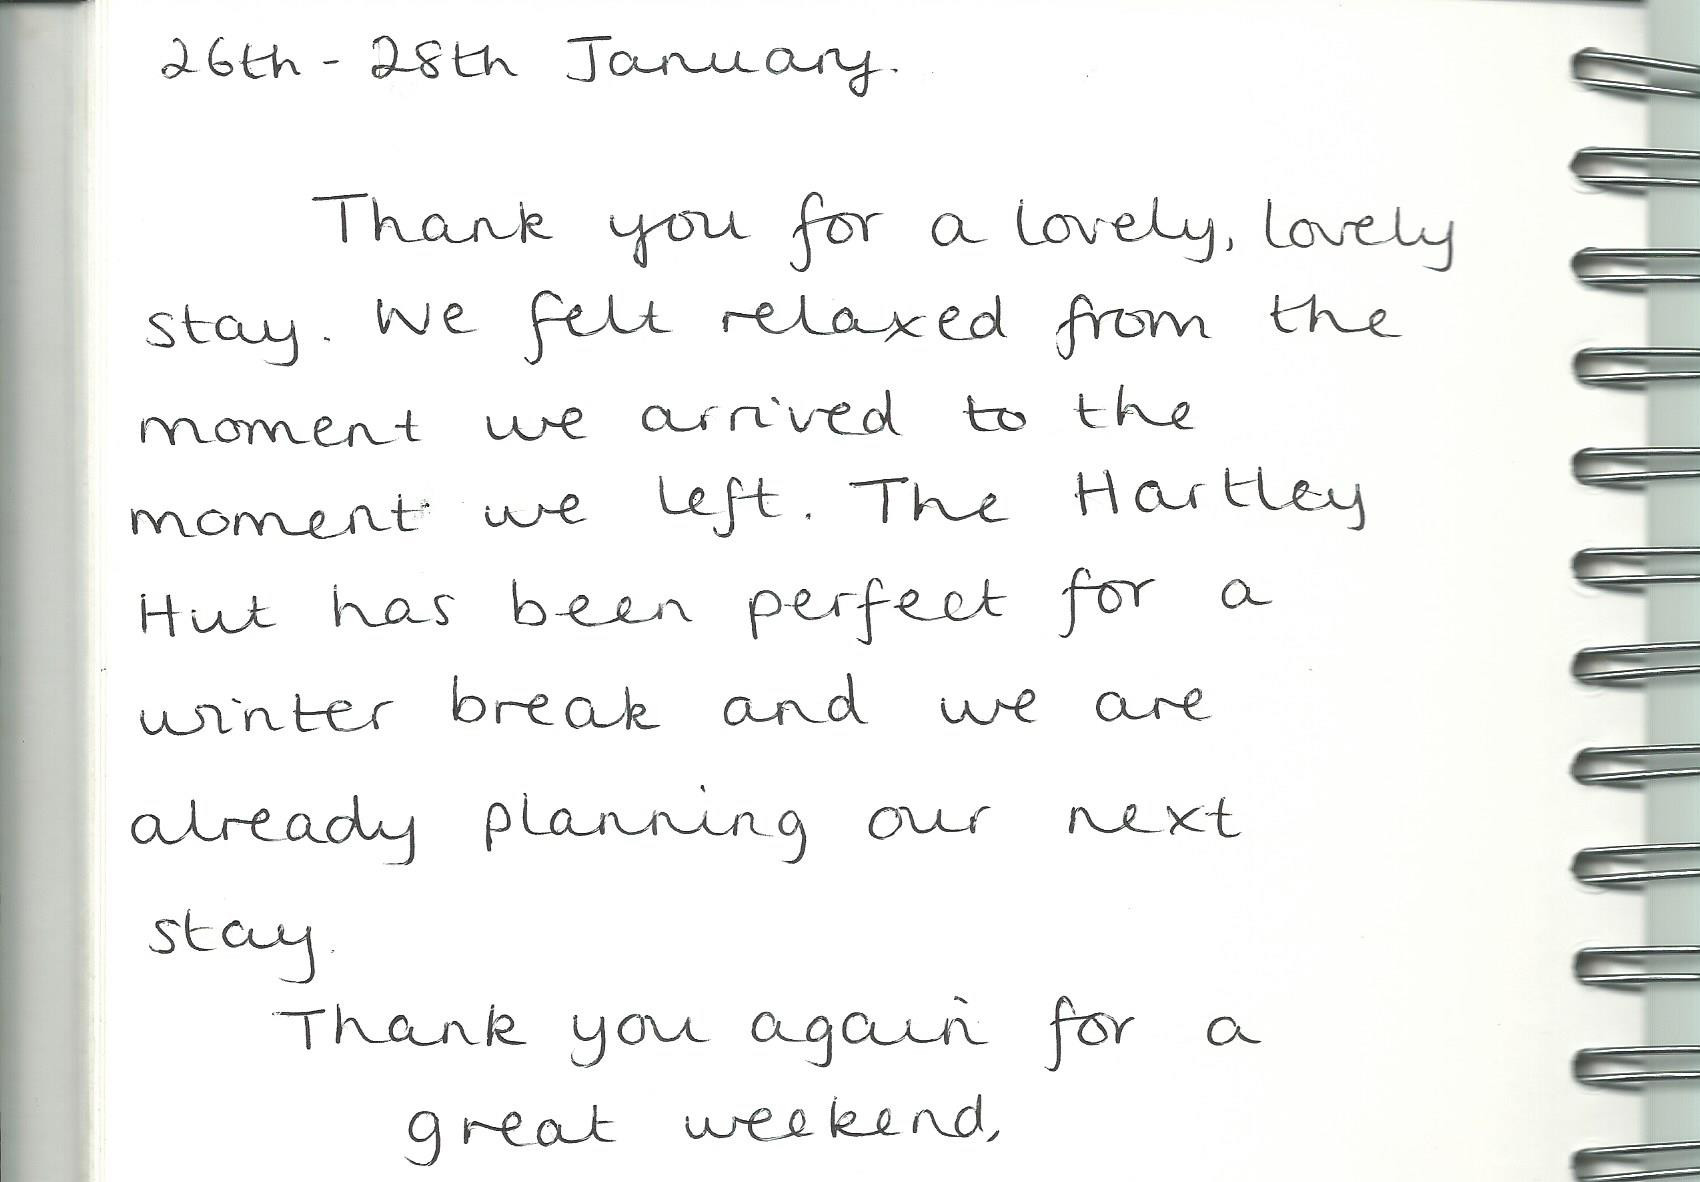 26th - 28th January.
Thank you for a lovely, lovely
stay. We felt relaxed from the
moment we arrived to the
moment we left. The Hartley
Hut has been perfect for a
winter break and we are
already planning our next
stay.
Thank you again for a
great weekend,